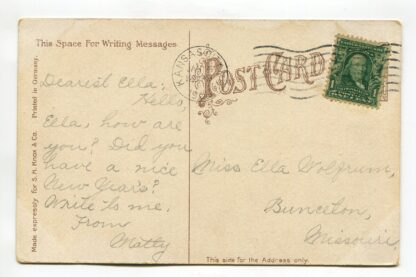 This Space For Writing Messages.
POST CARD
KANSAS
Dearest Ella:
Hello,
Ella, how are
you? Did you
have a nice
New Years?
Write to me.
From
Matty
Miss Ella Wolfrum,
Bunceton,
Missouri.
This side for the Address only.
Made expressly for S. H. Knox & Co. Printed in Germany.